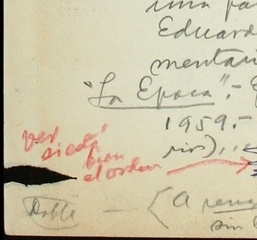 una pa
Eduard
mentari
"La Época".-
1959.-
ver
si está
bien
el orden
rios)...
Doble — (A
sin